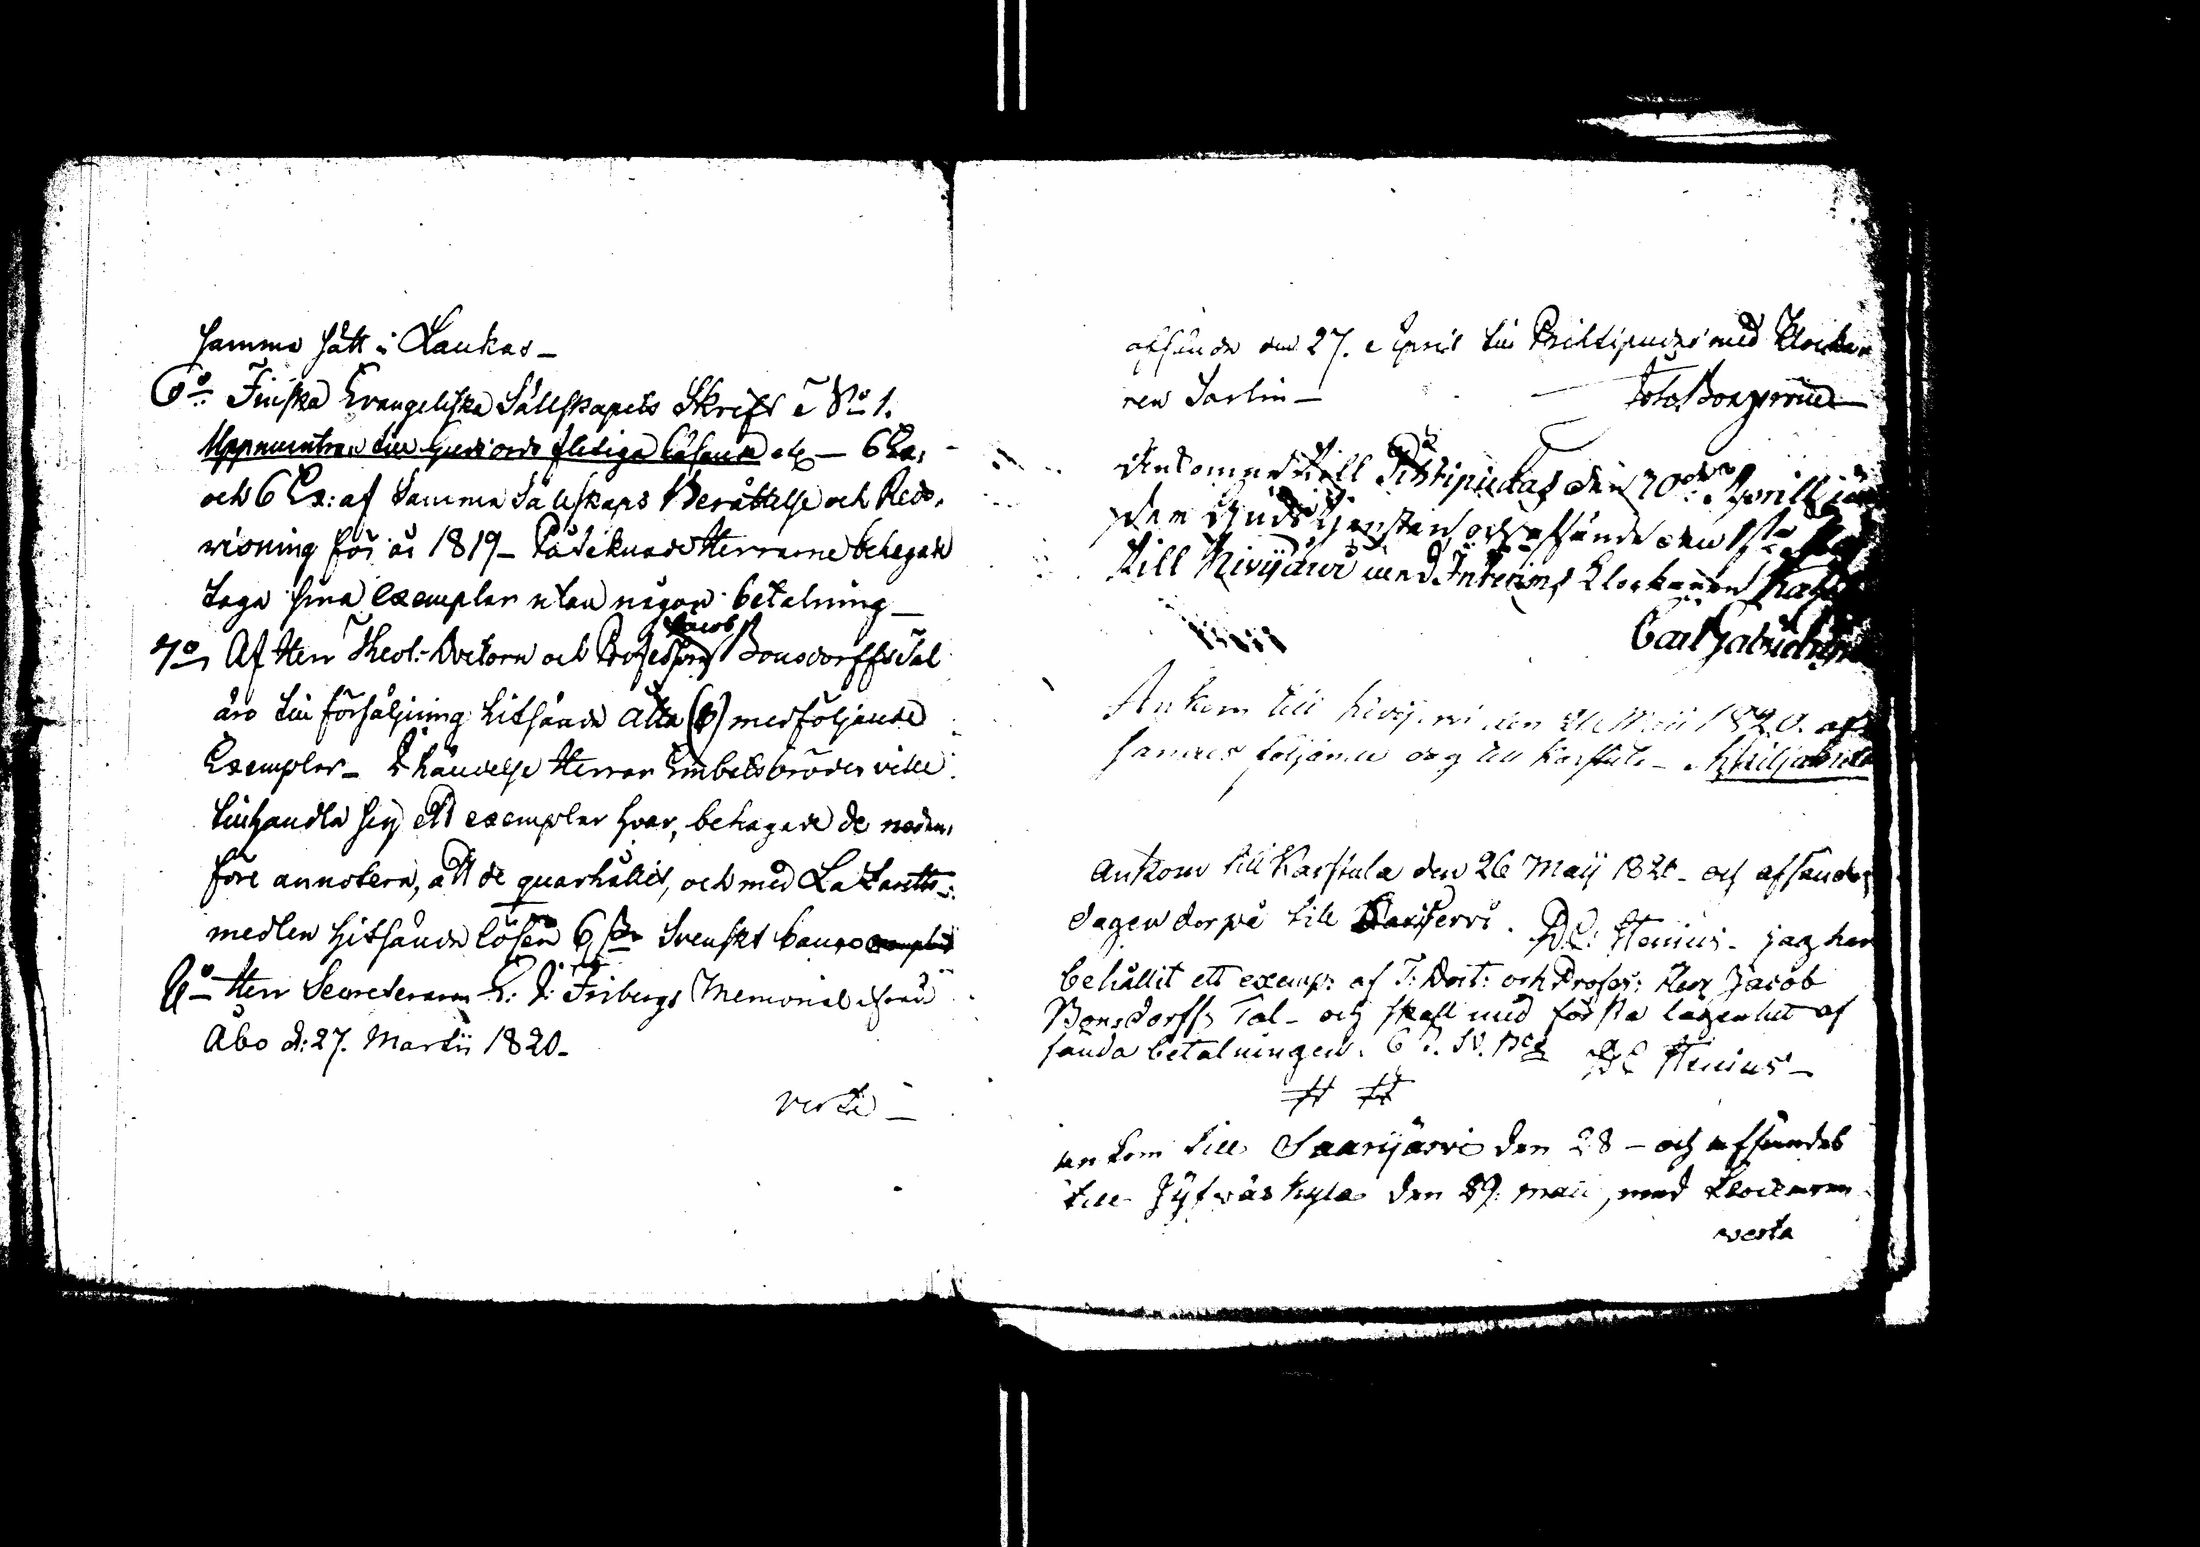 samma sätt i Laukas_
6o Finska Evangeliska Sällskapets Skrift No 1.
Uppmuntran till Guds ords flitiga läsande etc — 6 Ex.
och 6 Ex: af Samma Sällskaps Berättelse och Redo-
visning för år 1819_ Påteknade Herrarne behagade
taga sina exemplar utan någon betalning_
7o Af Herr Theol: Doctorn och Professorn Jacob Bonsdorffs Tal
äro till försäljning hitsände åtta (8) medföljande
Exemplar_ I händelse Herrar Embetsbröder ville
tillhandla sig ett exemplar hvar, behagade de neden-
före annotera, att de quarhållit, och med Lazaretts-
medlen hitsända lösen 6 Svenskt banco
8o Herr Secreteraren Fribergs Memorial ifrån
Åbo d: 27. Martii 1820_
verte_
afsände den 27. April till Pihtipudas med Klocka-
ren Sarlin_
Ankommed till Pihtipudas den 30de Aprill
Gudstjensten och afsände den 1sta
till Kivijärvi med Interims Klockaren
Carl
Ankom till Kivijervi den Maii 1820. af-
sändes följande dag till Karstula_
ankom till Karstula den 26 Maij 1820_ och afsändes
dagen derpå till Saarjervi. Stenius_ jag har
behållit ett exemp: af T: Doct: och Profess: Herr Jacob
Bonsdorffs Tal_ och skall med första lägenhet af-
sända betalningen. 6 Sv. Bco Stenius_
ankom till Saarijärvi den 28_ och afsändes
till Jyfwäskyla den 29. maii, med Klockaren
verta